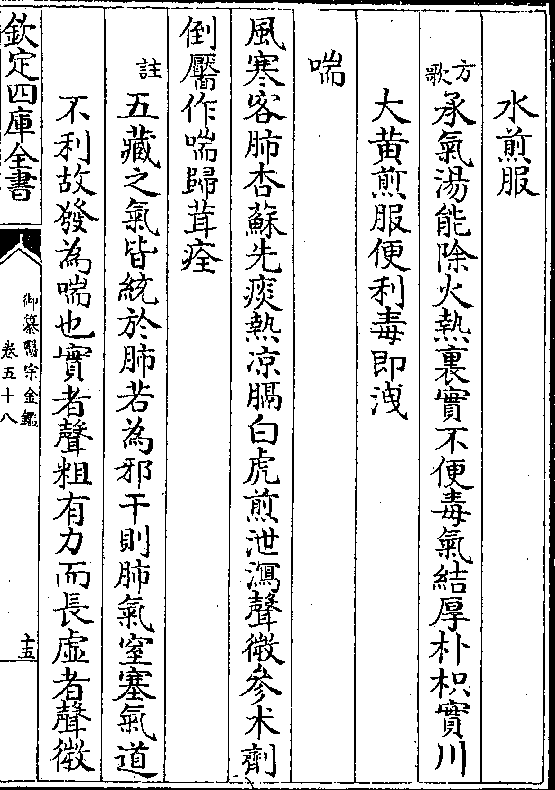 水煎服
方歌 承氣湯能除火熱裏實不便毒氣結厚朴枳實川
大黄煎服便利毒即洩
喘
風寒客肺杏蘇先痰熱凉膈白虎煎泄瀉聲微參术劑
倒靨作喘歸茸痊
註 五藏之氣皆統於肺若為邪干則肺氣窒塞氣道
不利故發為喘也實者聲粗有力而長虛者聲微
欽定四庫全書
御纂醫宗金鑑
卷五十八
十五